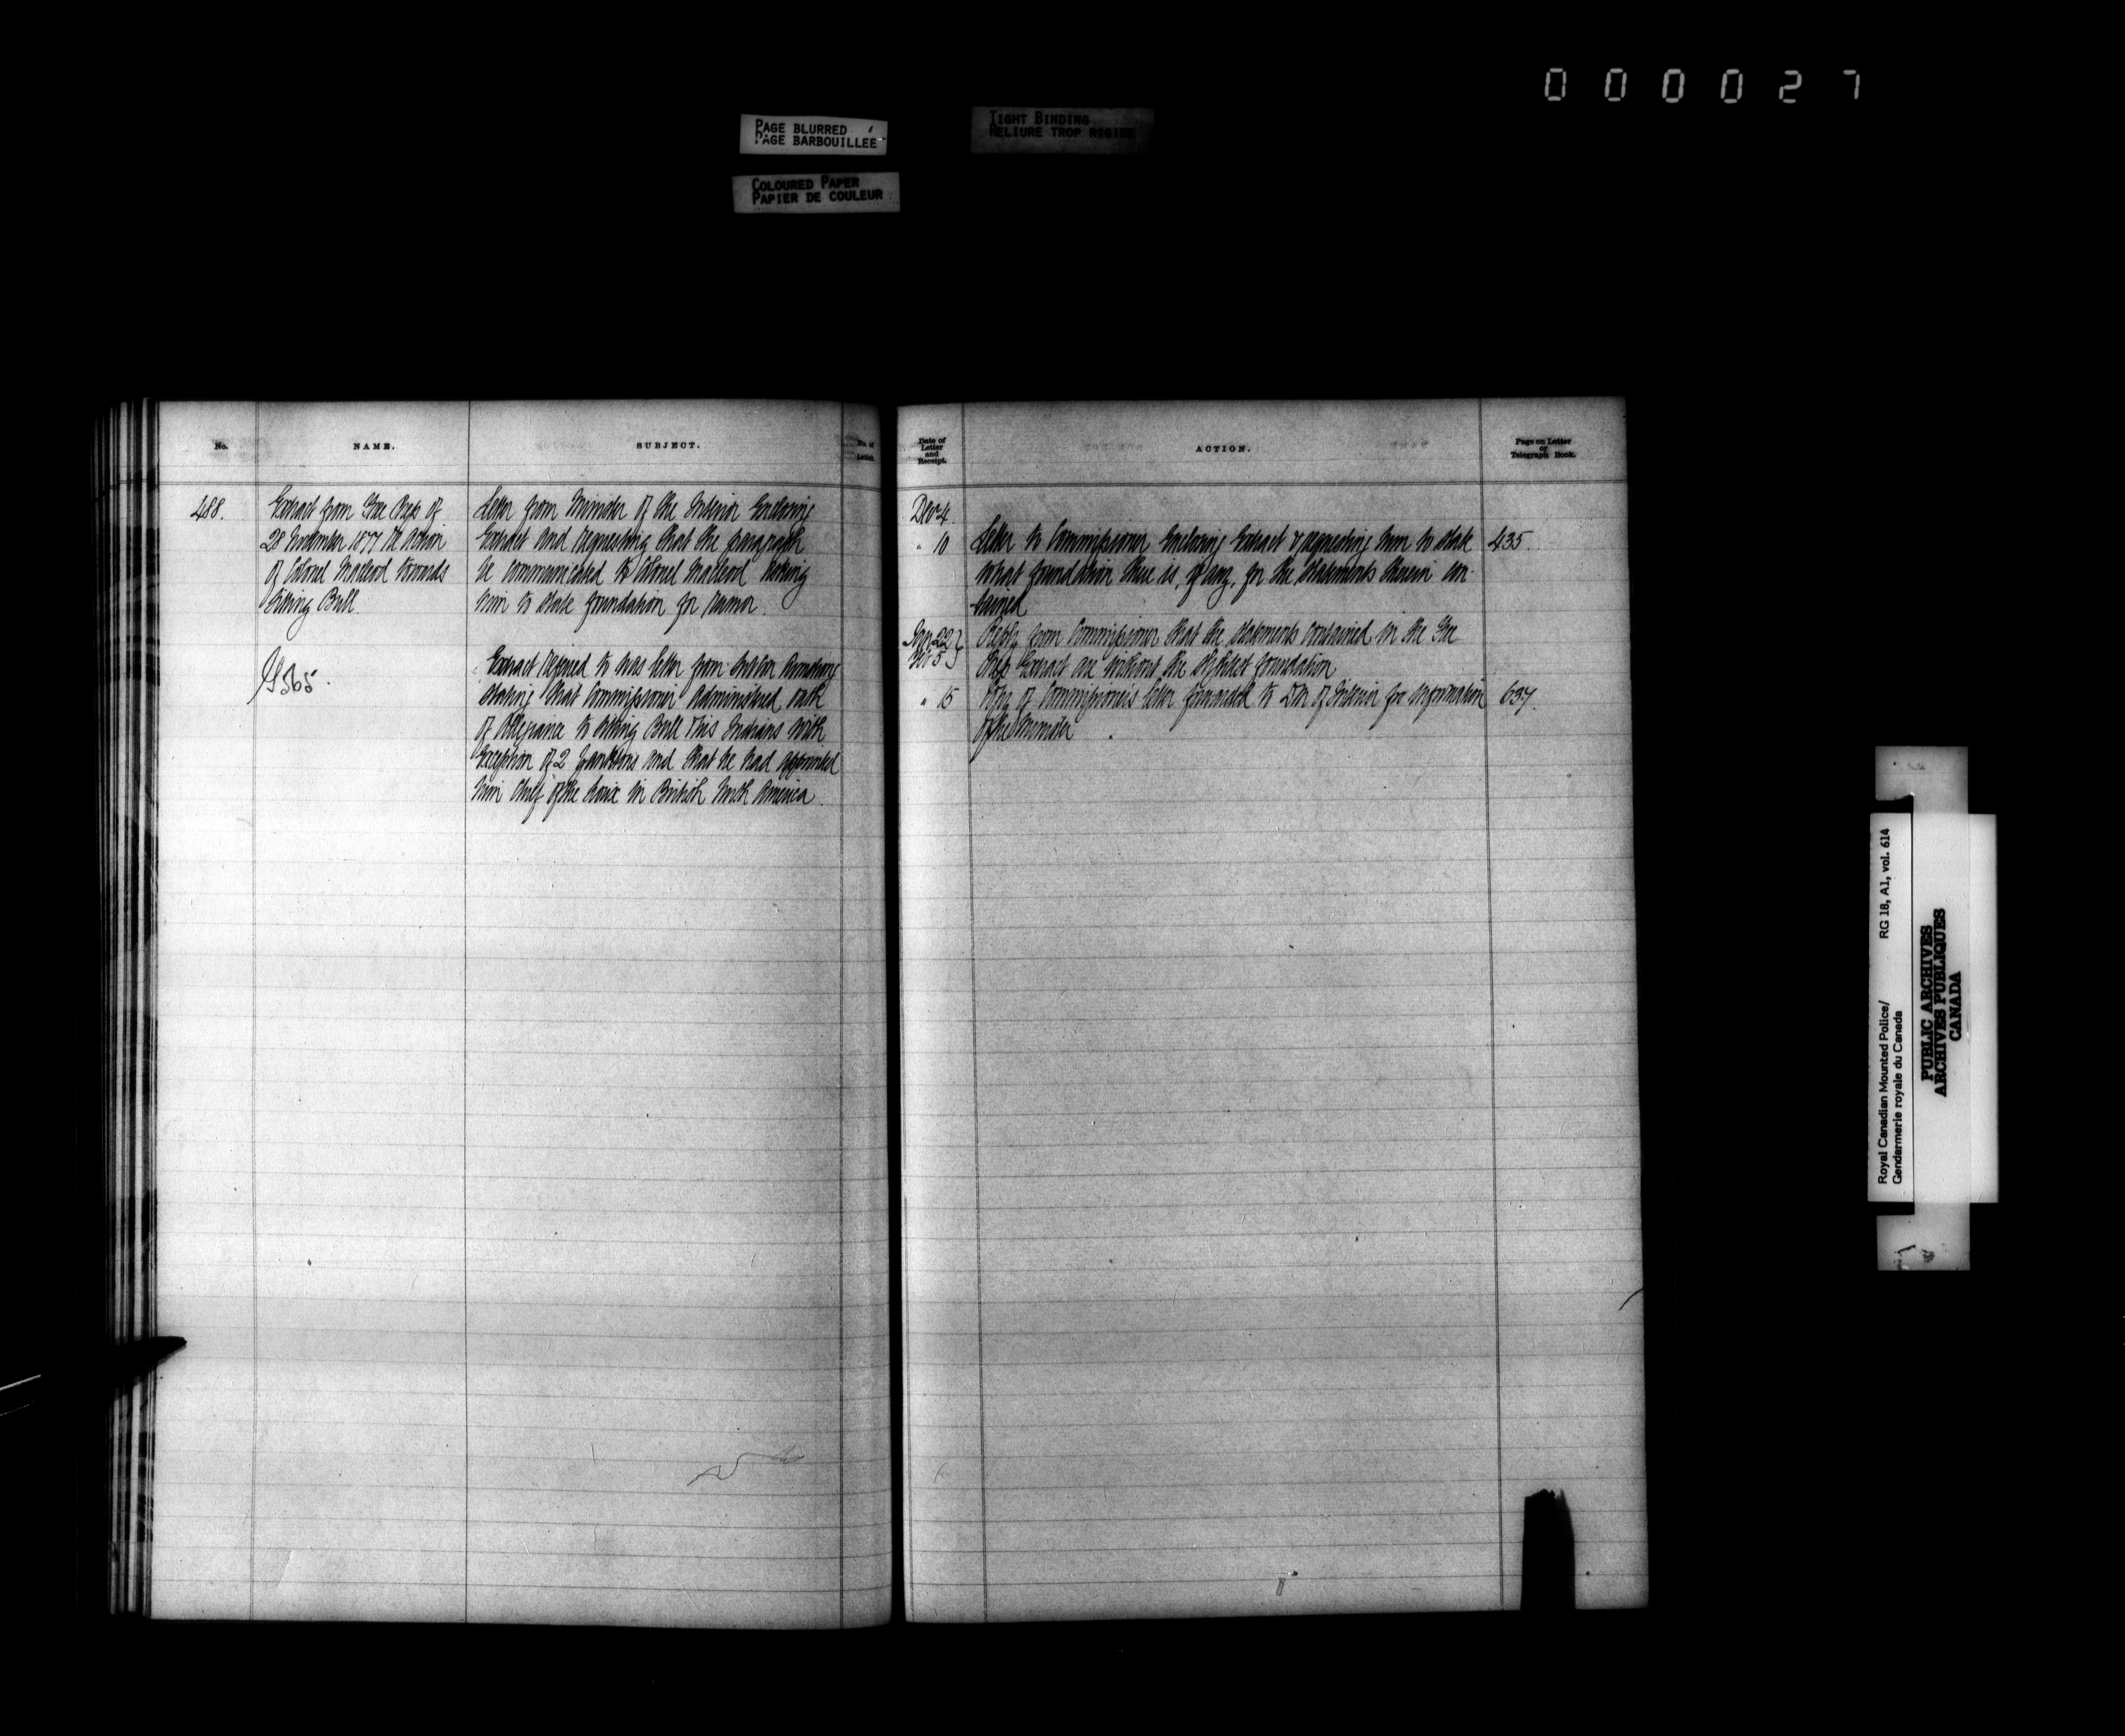 0 0 0 0 2 7
PAGE BLURRED
PAGE BARBOUILLEE
TIGHT BINDING
RELIURE TROP RIGIDE
COLOURED PAPER
PAPIER DE COULEUR
No.
NAME.
SUBJECT.
No. of Letter.
488.
Extract from Free Press of
28 November 1877 re Action
of Colonel Macleod towards
Sitting Bull.
Letter from Minister of the Interior Enclosing
Extract and requesting that the paragraph
be communicated to Colonel Macleod asking
him to state foundation for rumor.
Extract referred to was letter from
stating that Commissioner Administered oath
of Allegiance to Sitting Bull & his Indians with
Exception of 2 Yanktons and that he had appointed
him Chief of the Sioux in British North America.
Date of
Letter
and
Receipt.
ACTION.
Page on Letter
or
Telegraph Book.
Dec 4.
" 10 Letter to Commissioner Enclosing Extract & requesting him to state 435.
what foundation there is, if any, for the statements therein con-
tained
Jan 22 Reply from Commissioner that the statements contained in the Free
Feb 5 Press Extract are without the slightest foundation
" 15 Copy of Commissioner's letter forwarded to Dm of Interior for information 637.
of the Minister
Royal Canadian Mounted Police/ RG 18, A1, vol. 614
Gendarmerie royale du Canada
PUBLIC ARCHIVES
ARCHIVES PUBLIQUES
CANADA